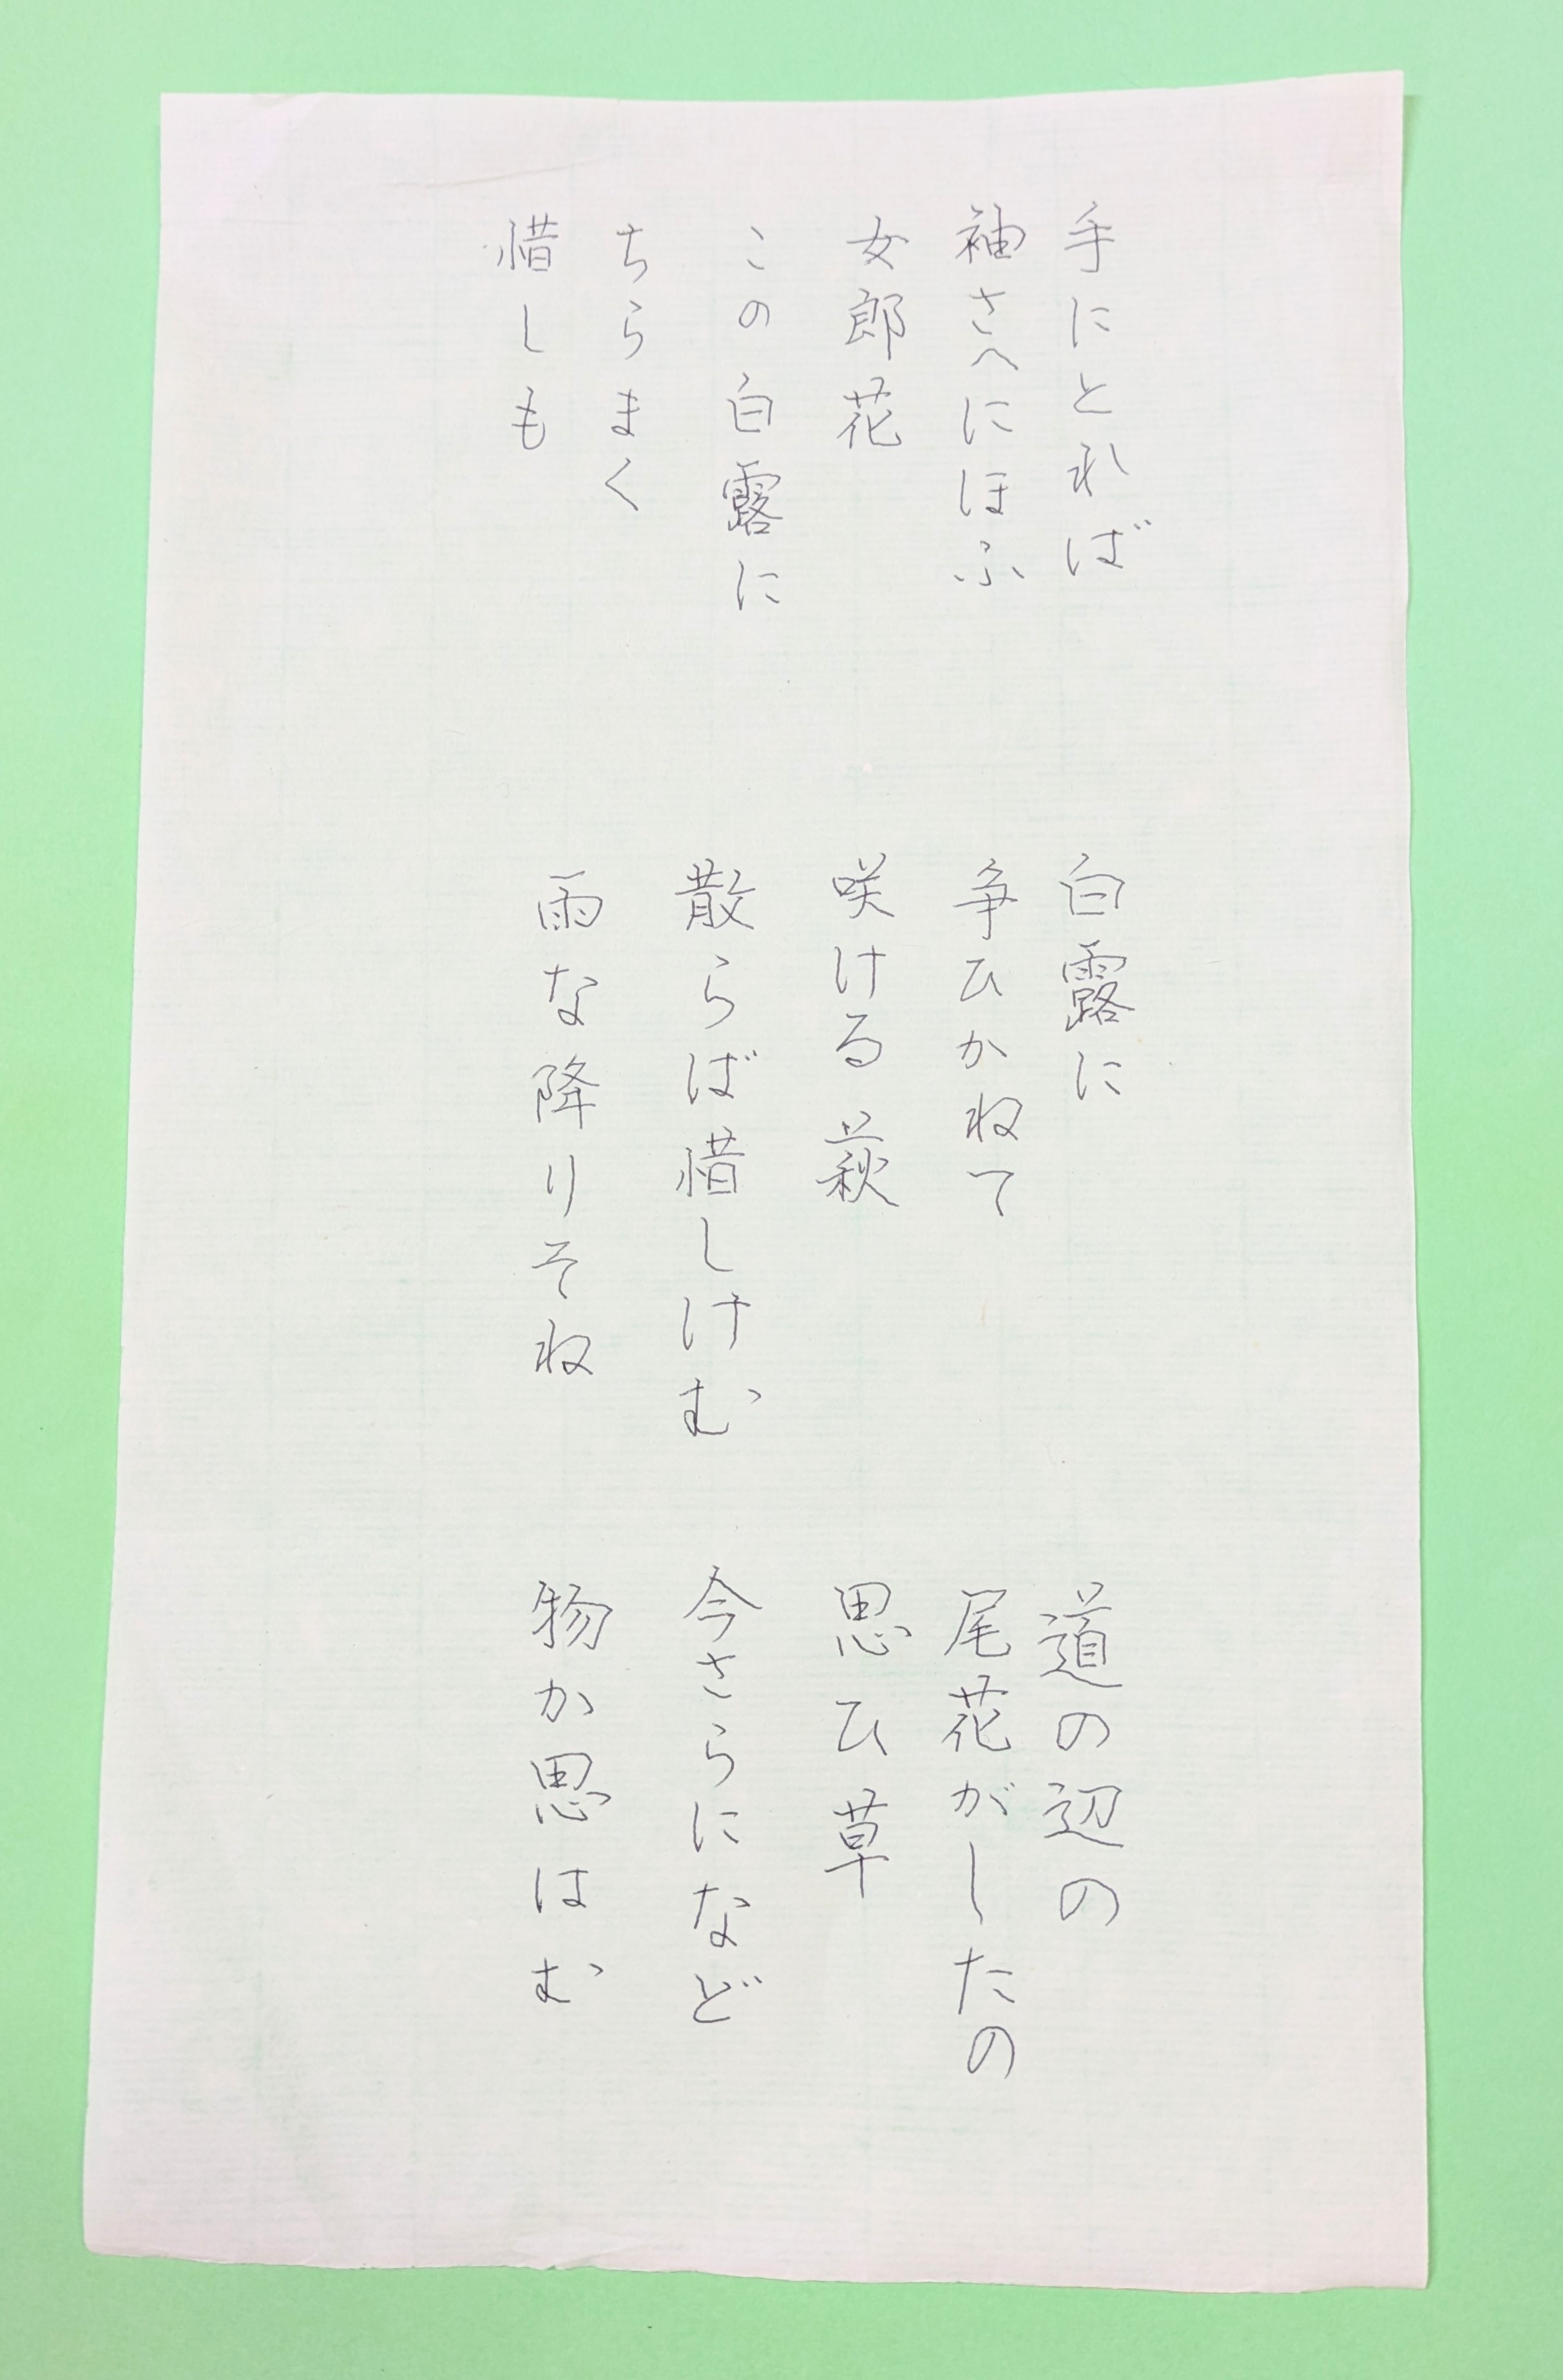 手にとれば
袖さへにほふ
女郎花
この白露に
ちらまく
惜しも
白露に
争ひかねて
咲ける萩
散らば惜しけむ
雨な降りそね
道の辺の
尾花がしたの
思ひ草
今さらになど
物か思はむ